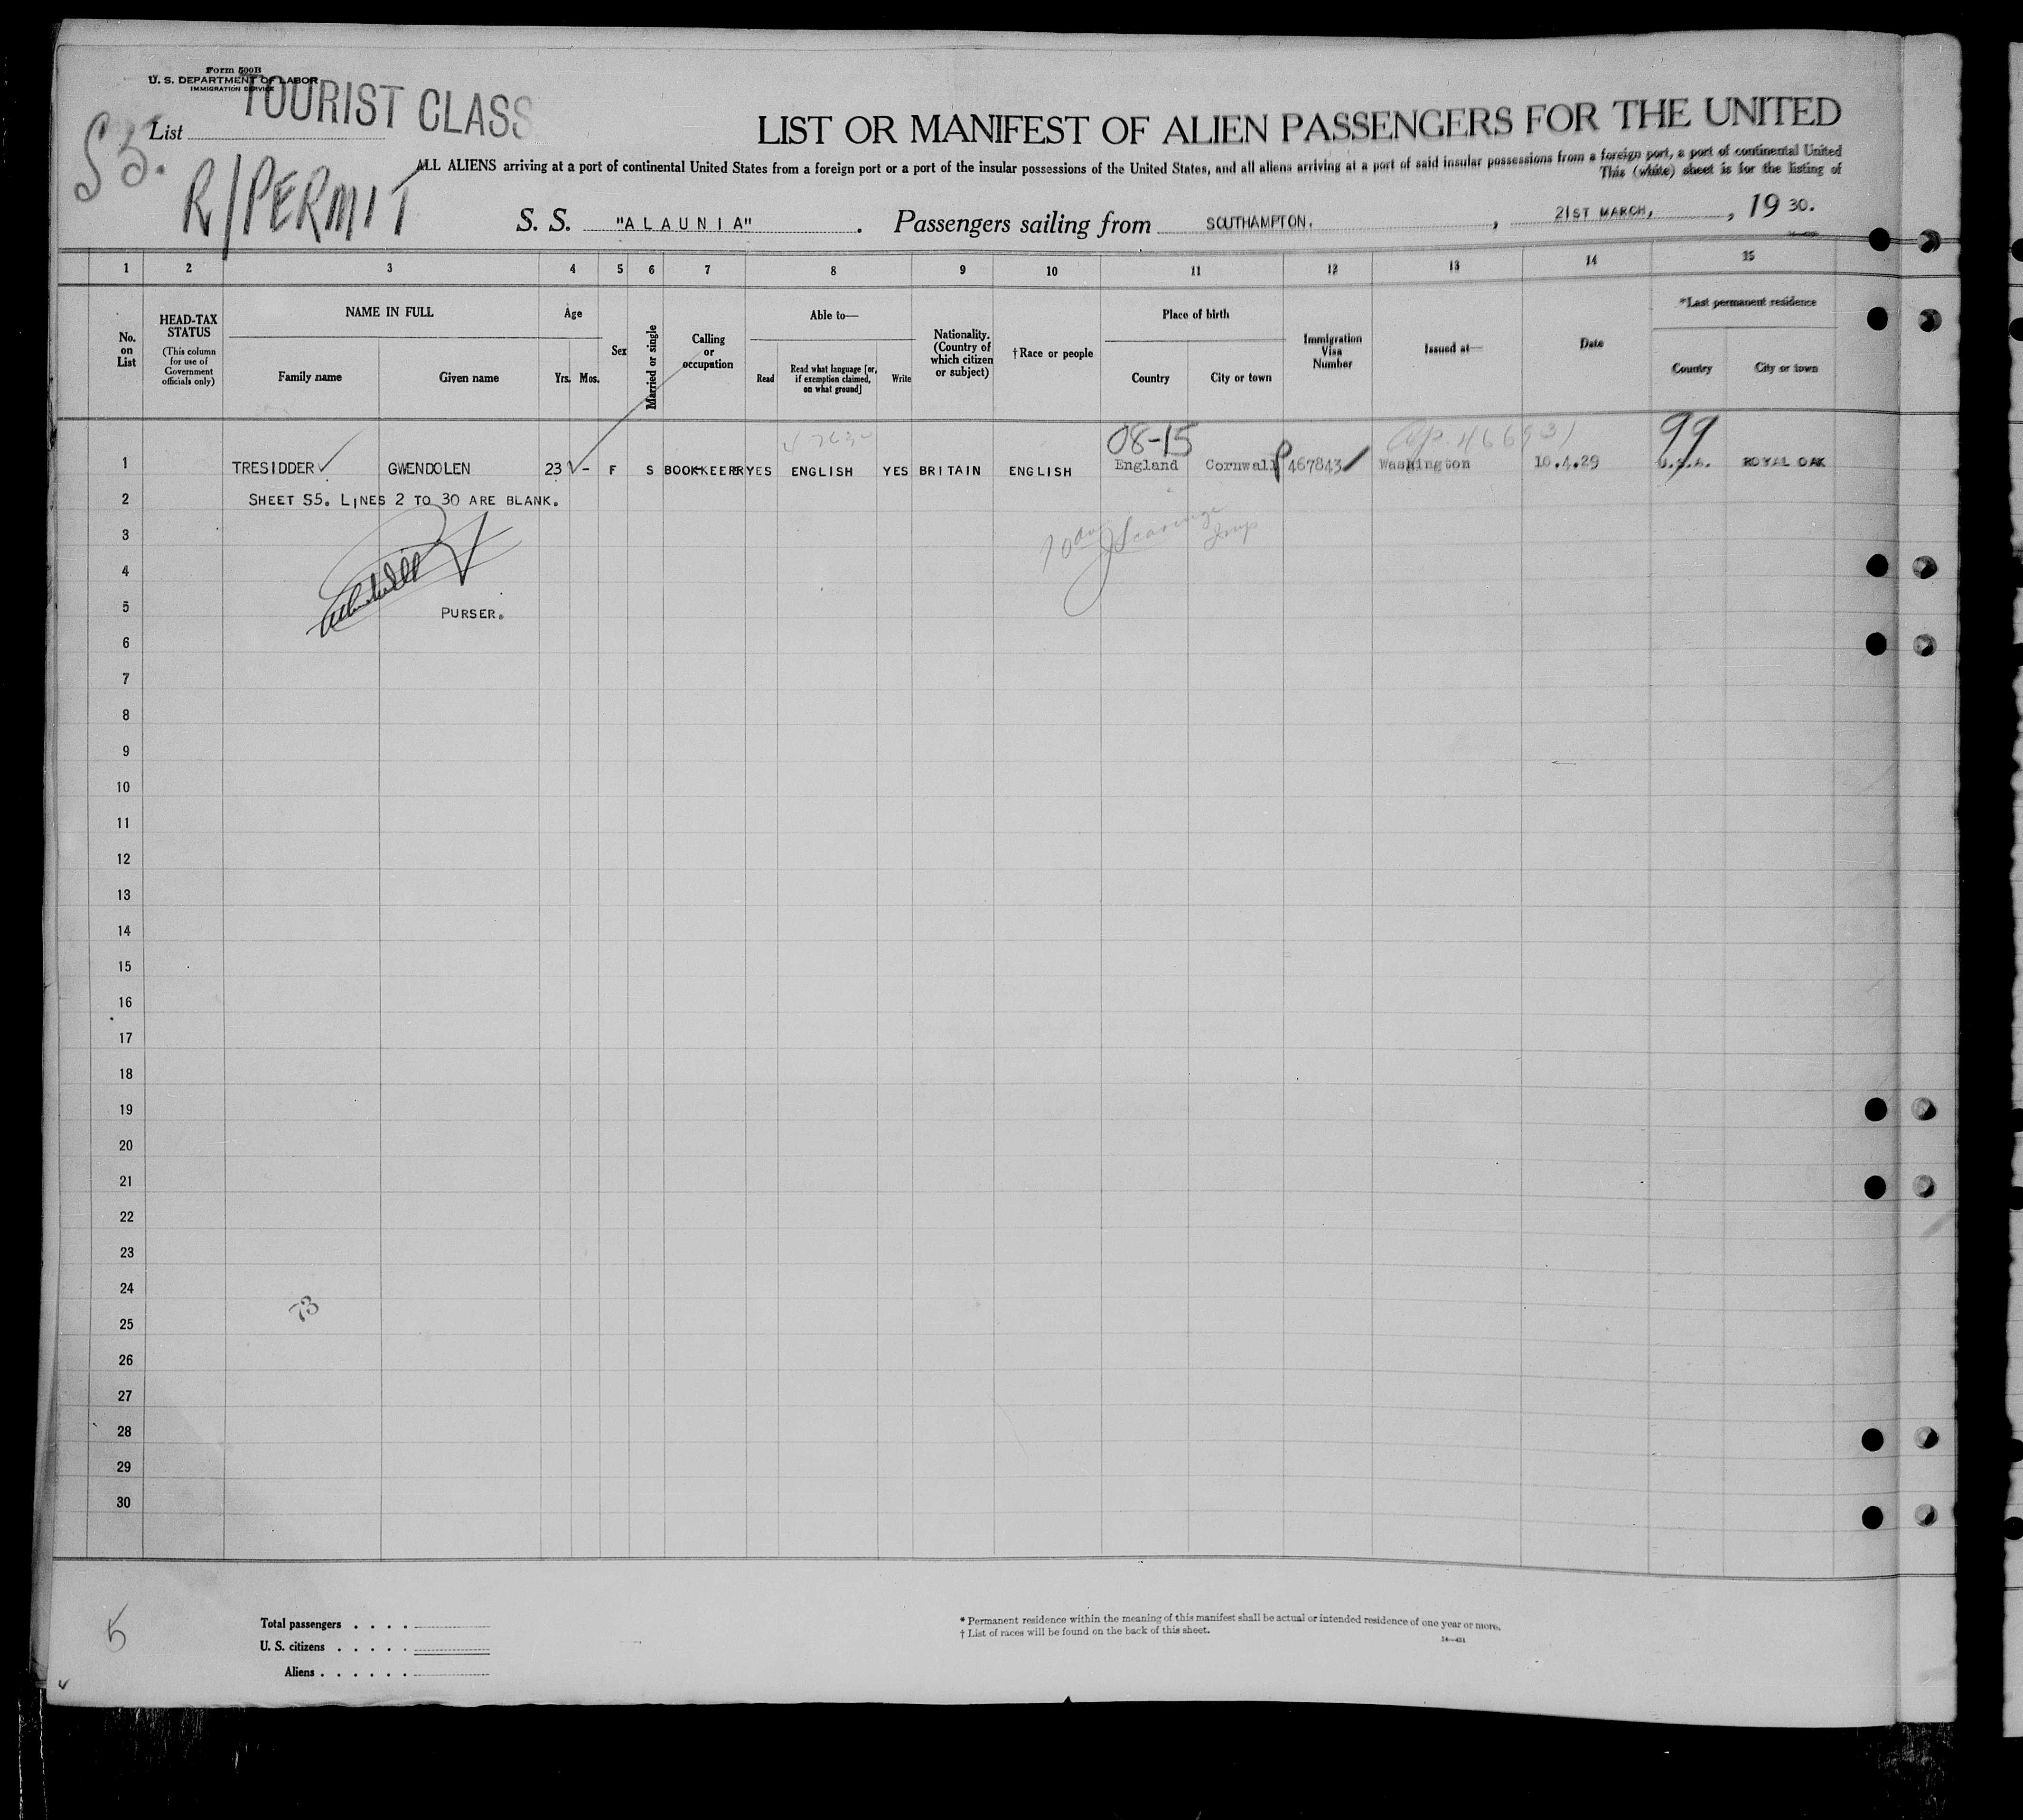 Form 500B
U. S. DEPARTMENT OF LABOR
IMMIGRATION SERVICE
TOURIST CLASS
S5.
List
R/PERMIT
LIST OR MANIFEST OF ALIEN PASSENGERS FOR THE UNITED
ALL ALIENS arriving at a port of continental United States from a foreign port or a port of the insular possessions of the United States, and all aliens arriving at a port of said insular possessions from a foreign port, a port of continental United
This (white) sheet is for the listing of
S. S. "ALAUNIA" . Passengers sailing from SOUTHAMPTON. , 21ST MARCH, , 19 30.
1 2 3 4 5 6 7 8 9 10 11 12 13 14 15
No. on List
HEAD-TAX STATUS
(This column for use of Government officials only)
NAME IN FULL
Family name Given name
Age
Yrs. Mos.
Sex
Married or single
Calling or occupation
Able to—
Read
Read what language [or, if exemption claimed, on what ground]
Write
Nationality. (Country of which citizen or subject)
† Race or people
Place of birth
Country City or town
Immigration Visa Number
Issued at—
Date
*Last permanent residence
Country City or town
08-15 99
1 TRESIDDER GWENDOLEN 23 - F S BOOK-KEEPER YES ENGLISH YES BRITAIN ENGLISH England Cornwall P 467843 Washington 10.4.29 U.S.A. ROYAL OAK
2 SHEET S5. LINES 2 TO 30 ARE BLANK.
3
4
5 PURSER.
6
7
8
9
10
11
12
13
14
15
16
17
18
19
20
21
22
23
24
73
25
26
27
28
29
30
5
Total passengers . . . .
U. S. citizens . . . . .
Aliens . . . . . .
* Permanent residence within the meaning of this manifest shall be actual or intended residence of one year or more.
† List of races will be found on the back of this sheet.
14—431